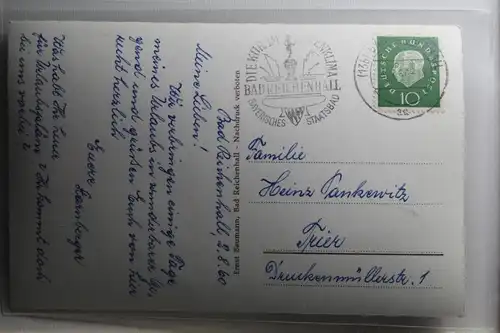 Bad Reichenhall 2.8.60
Meine Lieben!
Wir verbringen einige Tage
meines Urlaubs in wunderbarer Ge-
gend und grüßen Euch von hier
recht herzlich
Eure
Was habt Ihr heuer
für Urlaubspläne? Ihr kommt doch
bei uns vorbei?
Ernst Baumann, Bad Reichenhall - Nachdruck verboten
BAD REICHENHALL
BAYERISCHES STAATSBAD
DEUTSCHE BUNDESPOST
10
Familie
Heinz Pankewitz
Trier
Druckenmüllerstr. 1